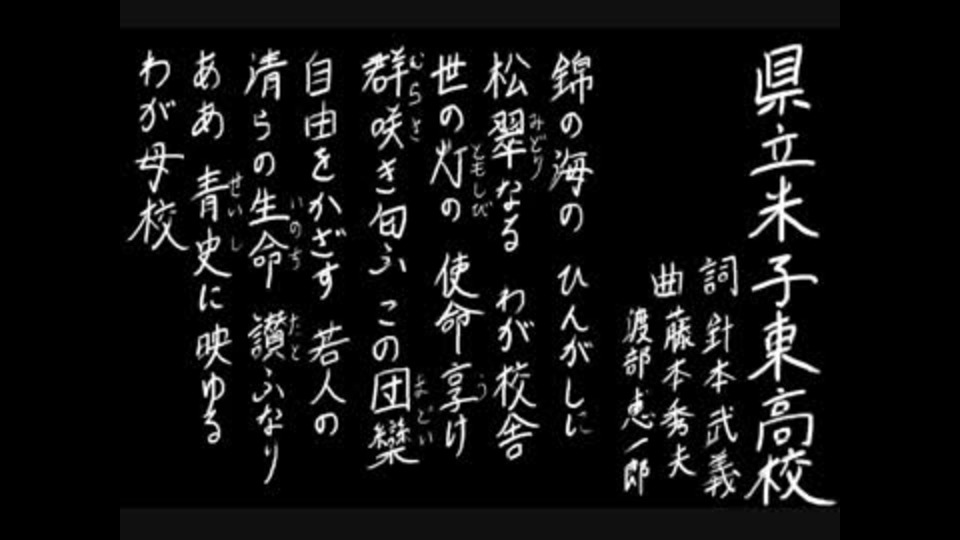 県立米子東高校
詞 針本武義
曲 藤本秀夫
渡部恵一郎
錦の海の ひんがしに
松翠なる わが校舎
みどり
世の灯の 使命享け
ともしび う
群咲き匂ふ この団欒
むらさ まどい
自由をかざす 若人の
清らの生命 讃ふなり
いのち たと
ああ 青史に映ゆる
せいし
わが母校